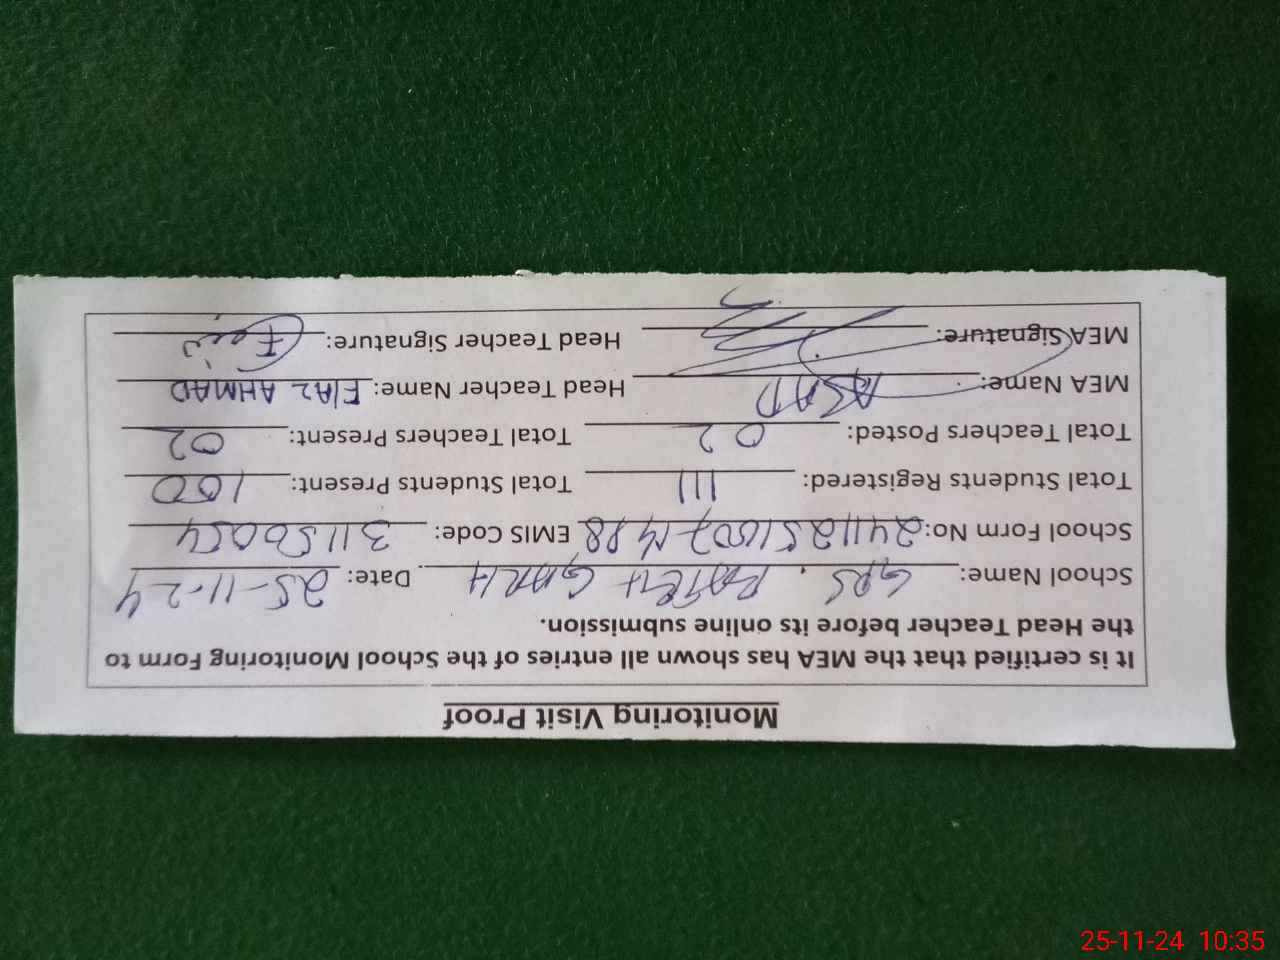 Monitoring Visit Proof
It is certified that the MEA has shown all entries of the School Monitoring Form to
the Head Teacher before its online submission.
School Name: GPS. GARH Date: 25-11-24
School Form No: EMIS Code: 31150054
Total Students Registered: 111 Total Students Present: 100
Total Teachers Posted: 02 Total Teachers Present: 02
MEA Name: ASAD Head Teacher Name: AHMAD
MEA Signature: Head Teacher Signature:
25-11-24 10:35